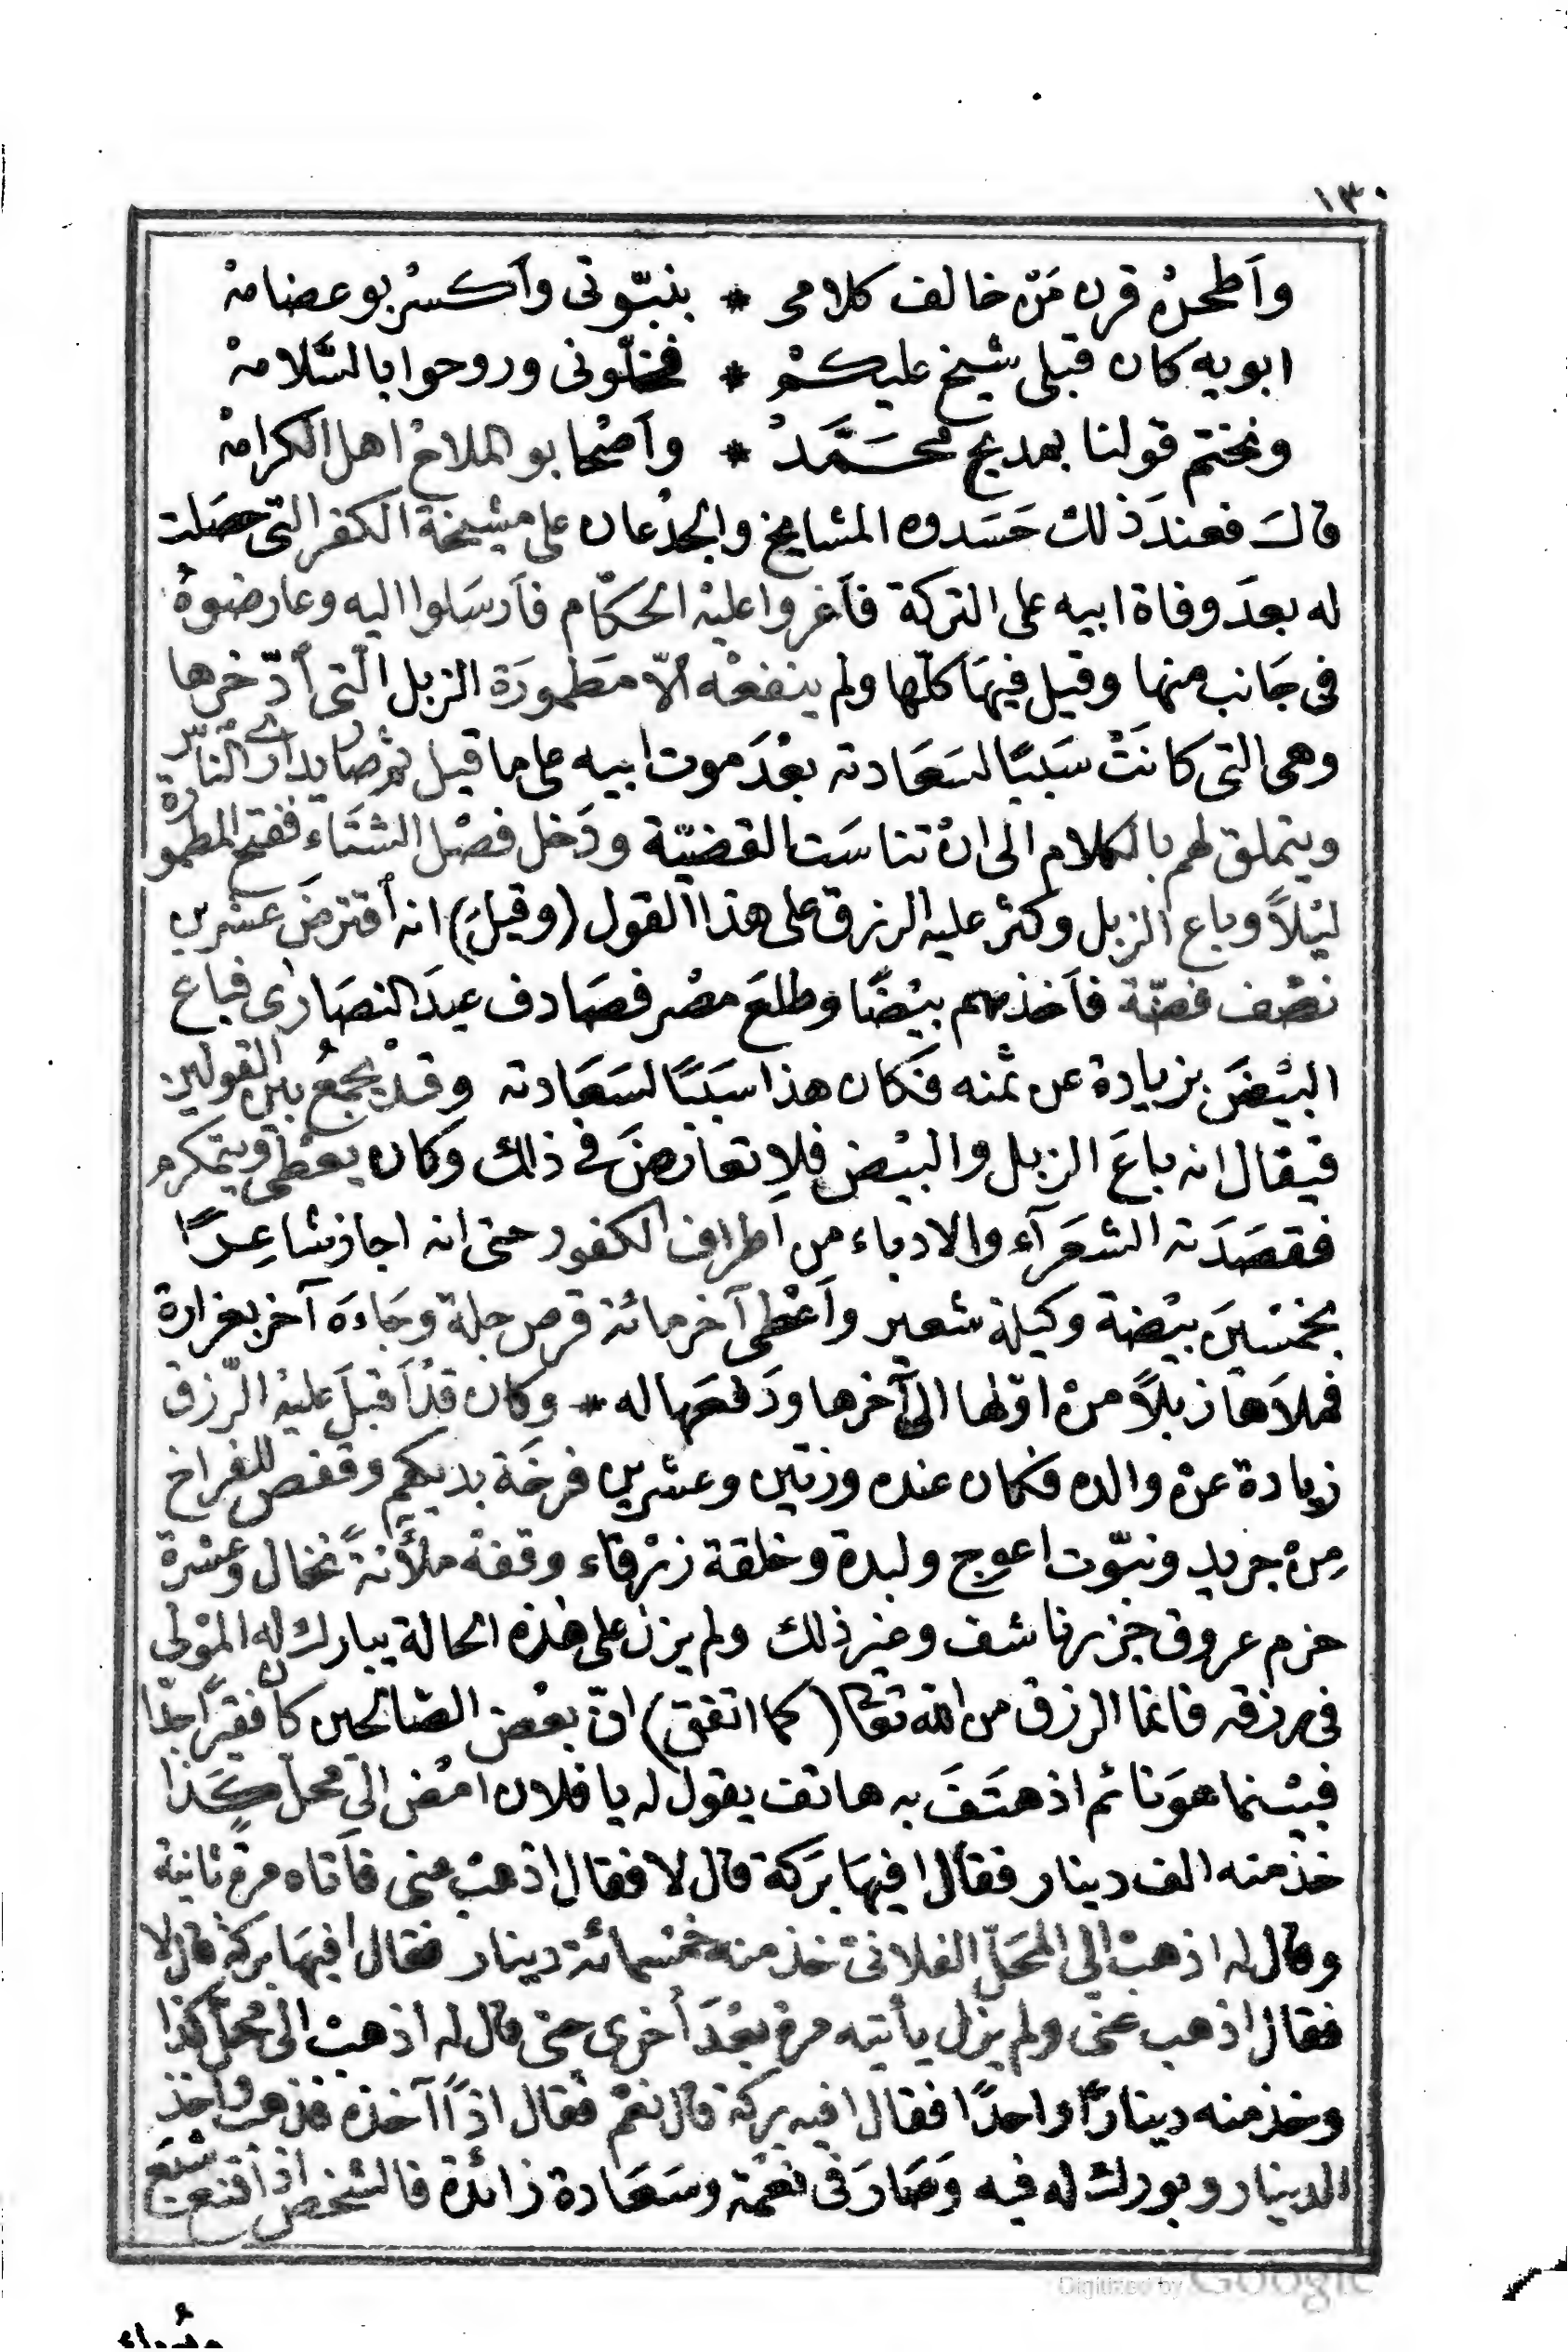 ١٣٠
وآطحنْ قرن مَنْ خالف كلامى * بنبّوتى وآكسْر بو عضامهْ
ابويه كان قبلى شيخ عليكمْ * فخلّونى وروحوا بالسَّلامهْ
ونختم قولنا بمديح محَمَّدْ * وآصْحابو الملاحْ اهل الكرامهْ
قالَ فعندَ ذلك حَسَدوه المشايخ والجدْعان على مشيخة الكفر التى حصَلت
له بعدَ وفاة ابيه على التركة فآغروا عليْه الحكّام فآرسَلوا اليه وعارضوهُ
فى جَانب منها وقيل فيهَا كلّها ولم ينفعْه الّا مَطمورَة الزبل الّتى أدّخرها
وهى التى كانَتْ سَببًا لسَعَادته بعْدَ موت ابيه على ما قيل ثم صَار يدارى النّاس
ويتملق لهم بالكلام الى انْ تناسَت القضيّة ودَخل فصْل الشتَاء ففتح المطمورة
ليْلاً وباع الزبل وكثر عليه الرزق على هذا القول (وقيلَ) انه أقترضَ عشرين
نصْف فضّة فآخذ بهم بيْضًا وطلعَ مصْر فصَادف عيدَ النصَارى فباع
البيْضَ بزيادة عن ثمنه فكان هذا سَببًا لسَعَادته وقدْ يجْمعُ بين القولين
فيقال انه باعَ الزبل والبيْض فلا تعارضَ فى ذلك وكان يعْطى ويتكرم
فقصَدَته الشعَرآء والادباء من آطراف الكفور حتى انه اجاز شاعِرًا
بخمْسينَ بيْضة وكيلة شعير وآعْطى آخر مائة قرص جلة وجَاءَه آخر بغرارة
فملآها زبلاً منْ اوّلها الى آخرها ودَفعَها له * وكان قدْ آقبلَ عليْه الرّزق
زيادة عنْ والده فكان عنده وزتين وعشرين فرخَة بديكهم وقفص للفراخ
مِنْ جريد ونبّوت اعوج ولبدة وخلقة زرْقاء وقفة ملآنة نخال وعشرة
حزم عروق جزر ناشف وغير ذلك ولم يزل على هذه الحالة يبارك له المولى
فى رزقه فانما الرزق من الله تعَا (كما اتفق) انّ بعْض الصّالحين كان فقيرًا جدًّا
فبيْنما هوَ نائم اذ هتَفَ به هاتف يقول له يا فلان امْض الى محلّ كَذا
خذ منه الف دينار فقال افيهَا بَركة قال لا فقال اذهبْ عنى فآتاه مرة ثانية
وقال له اذهبْ الى المحَلّ الفلانى خذ منه خمْسمائة دينار فقال افيهَا بركة قال لا
فقال اذهب عنّى ولم يزل يأتيه مرة بعْدَ أخرى حتى قال له اذهبْ الى محلّ كذا
وخذ منه دينارًا واحدًا فقال افيه بركة قال نعَمْ فقال اذًا آخذه فذهب وآخذ
الدينار وبورك له فيه وَصَارَ فى نعْمة وسَعَادة زائدة فالشخص اذا قنعت